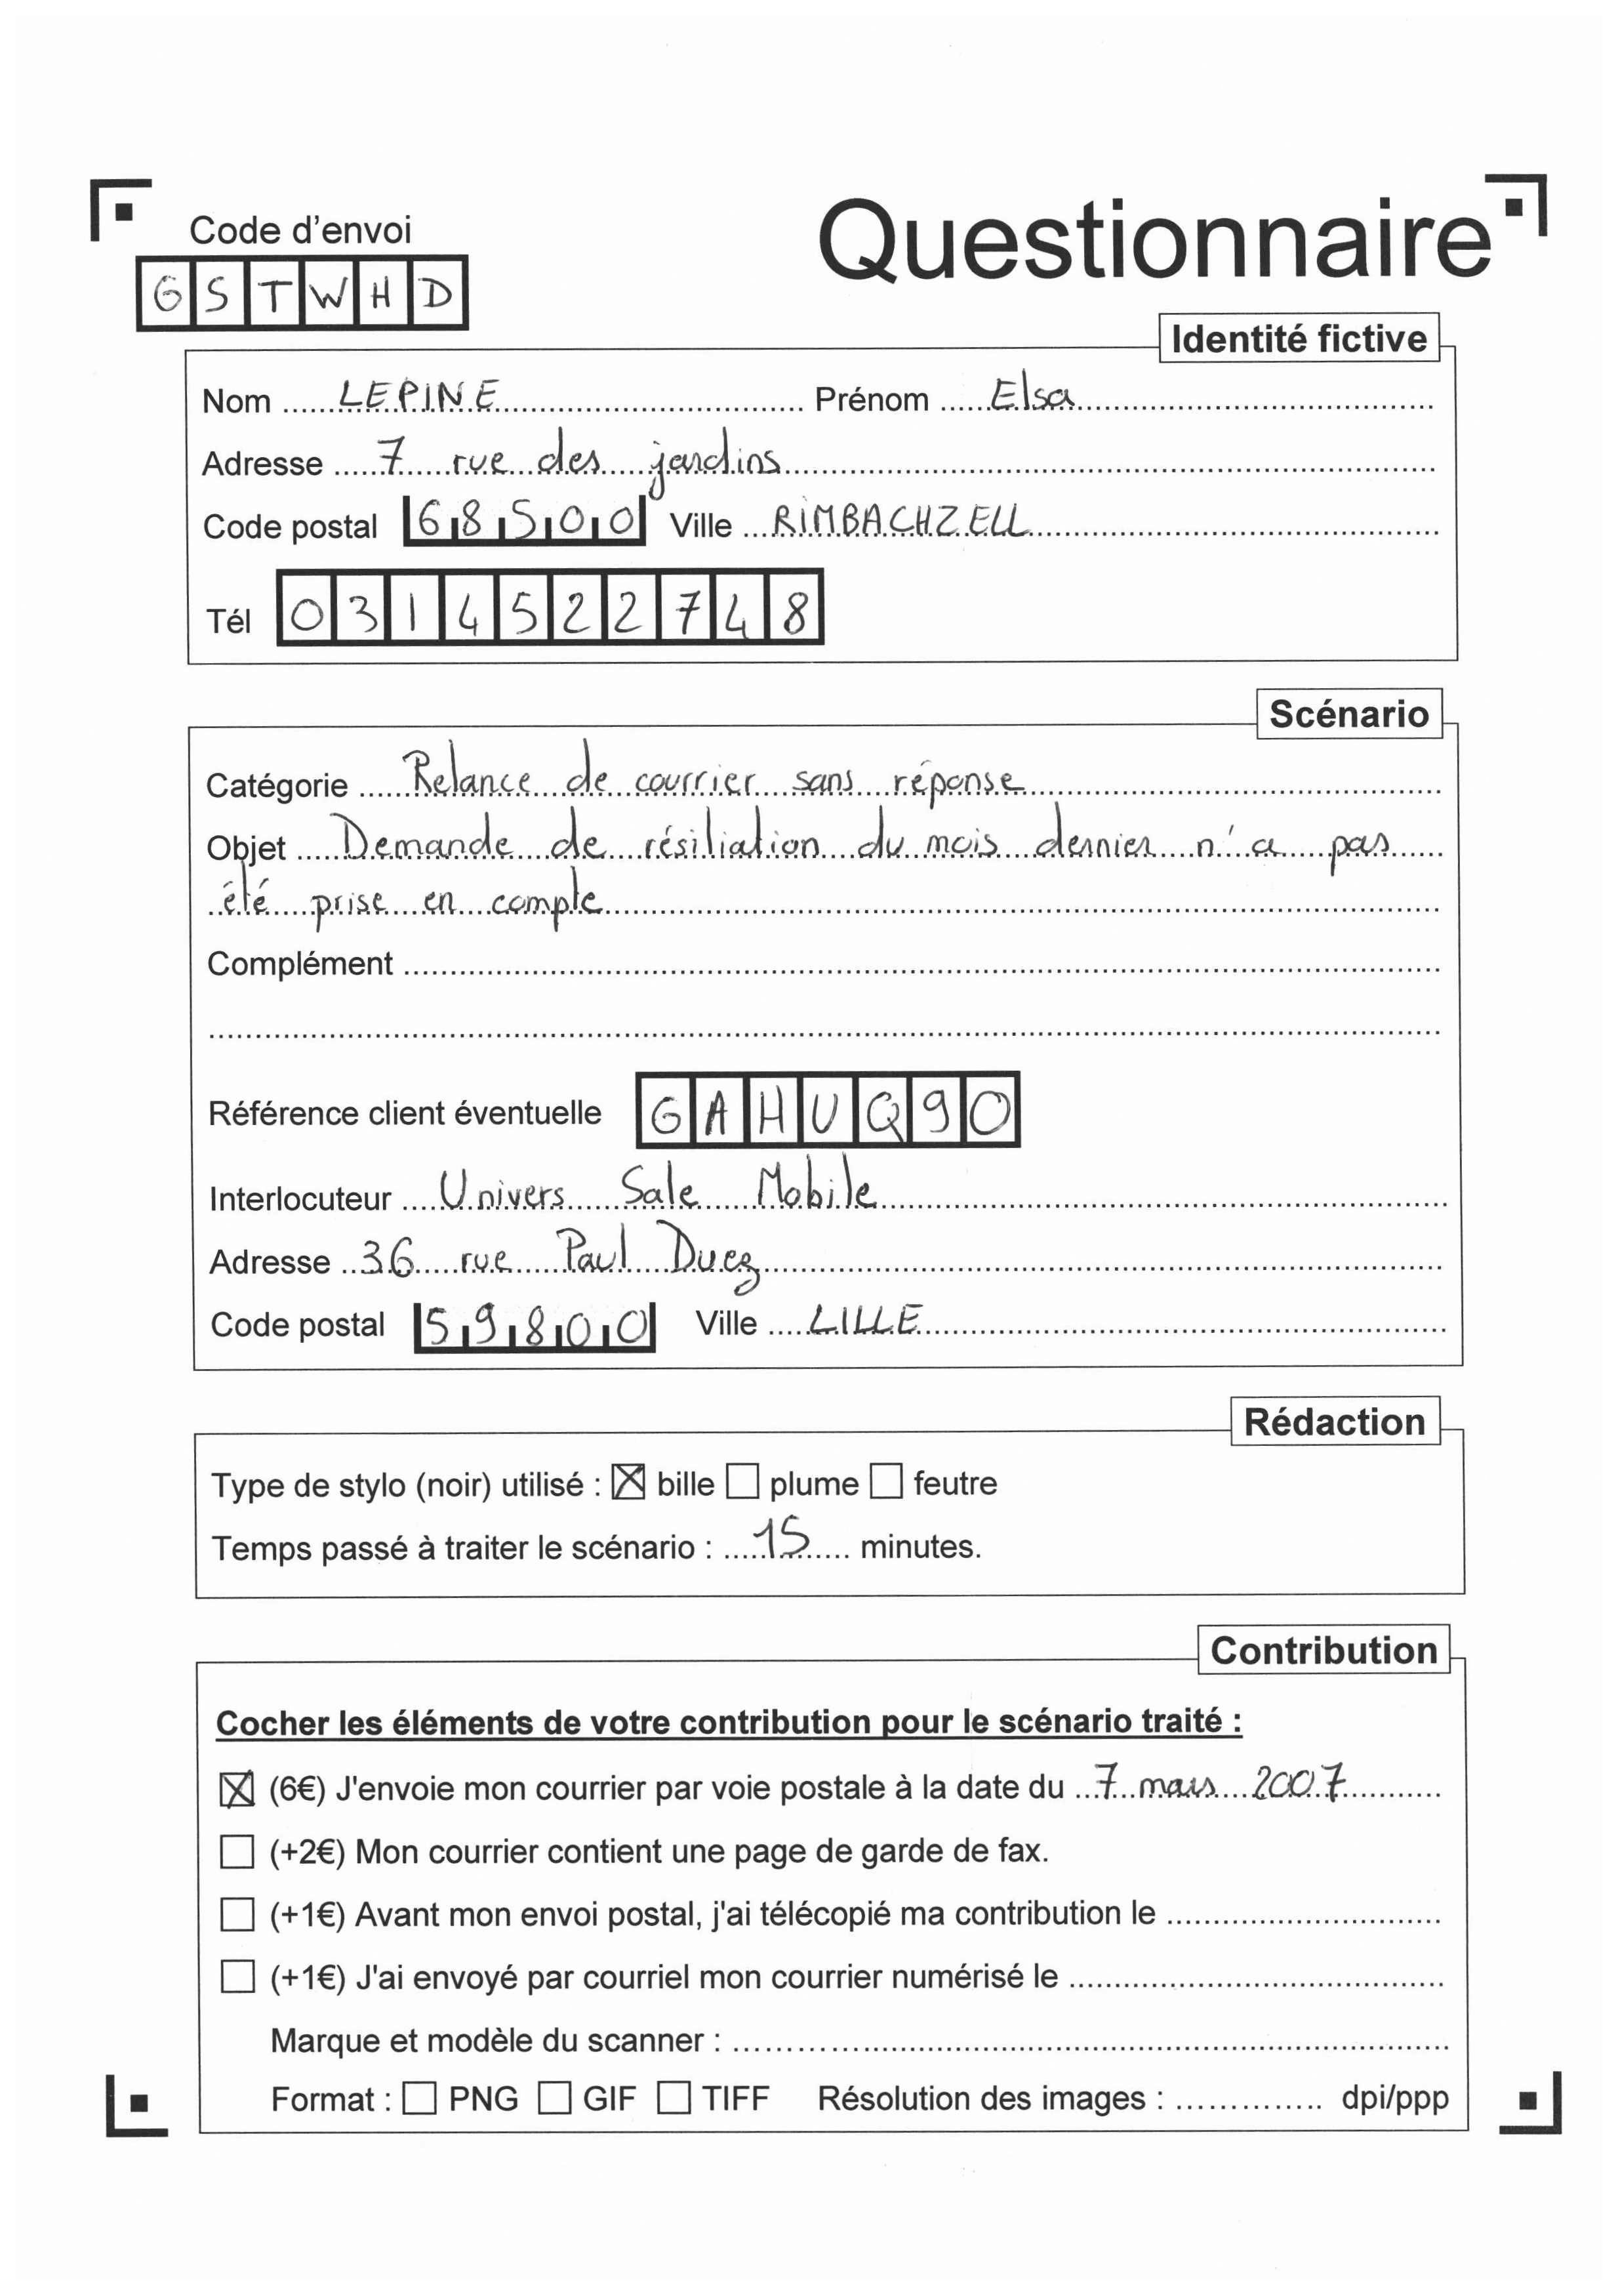 Code d'envoi
Questionnaire
GSTWHD
Identité fictive
Nom LEPINE Prénom Elsa
Adresse 7 rue des jardins
Code postal 68500 Ville RIMBACHZELL
Tél 0314522748
Scénario
Catégorie Relance de courrier sans réponse
Objet Demande de résiliation du mois dernier n'a pas
été prise en compte
Complément
Référence client éventuelle GAHUQ90
Interlocuteur Univers Sale Mobile
Adresse 36 rue Paul Duez
Code postal 59800 Ville LILLE
Rédaction
Type de stylo (noir) utilisé : ☒ bille ☐ plume ☐ feutre
Temps passé à traiter le scénario : 15 minutes.
Contribution
Cocher les éléments de votre contribution pour le scénario traité :
☒ (6€) J'envoie mon courrier par voie postale à la date du 7 mars 2007
☐ (+2€) Mon courrier contient une page de garde de fax.
☐ (+1€) Avant mon envoi postal, j'ai télécopié ma contribution le
☐ (+1€) J'ai envoyé par courriel mon courrier numérisé le
Marque et modèle du scanner :
Format : ☐ PNG ☐ GIF ☐ TIFF Résolution des images : dpi/ppp